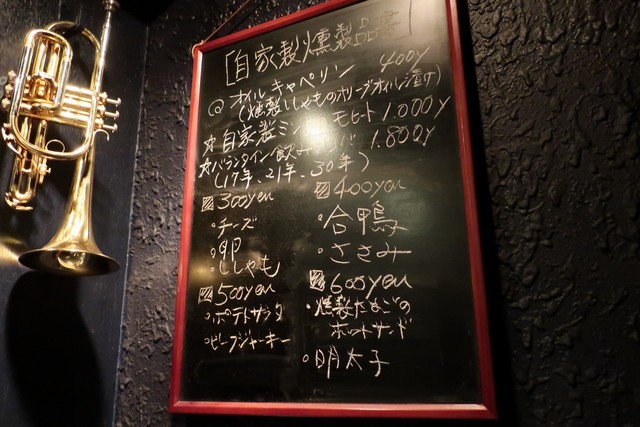 [自家製燻製品
@ オイルキャペリン 400y
(燻製ししゃものオリーブオイル漬け)
☆自家製ミント モヒート 1.000y
☆バランタイン飲み 1.800y
(17年、21年、30年)
300yen
・チーズ
・卵
・ししゃも
500yen
・ポテトサラダ
・ビーフジャーキー
400yen
・合鴨
・ささみ
600yen
・燻製たまごの
ホットサンド
・明太子